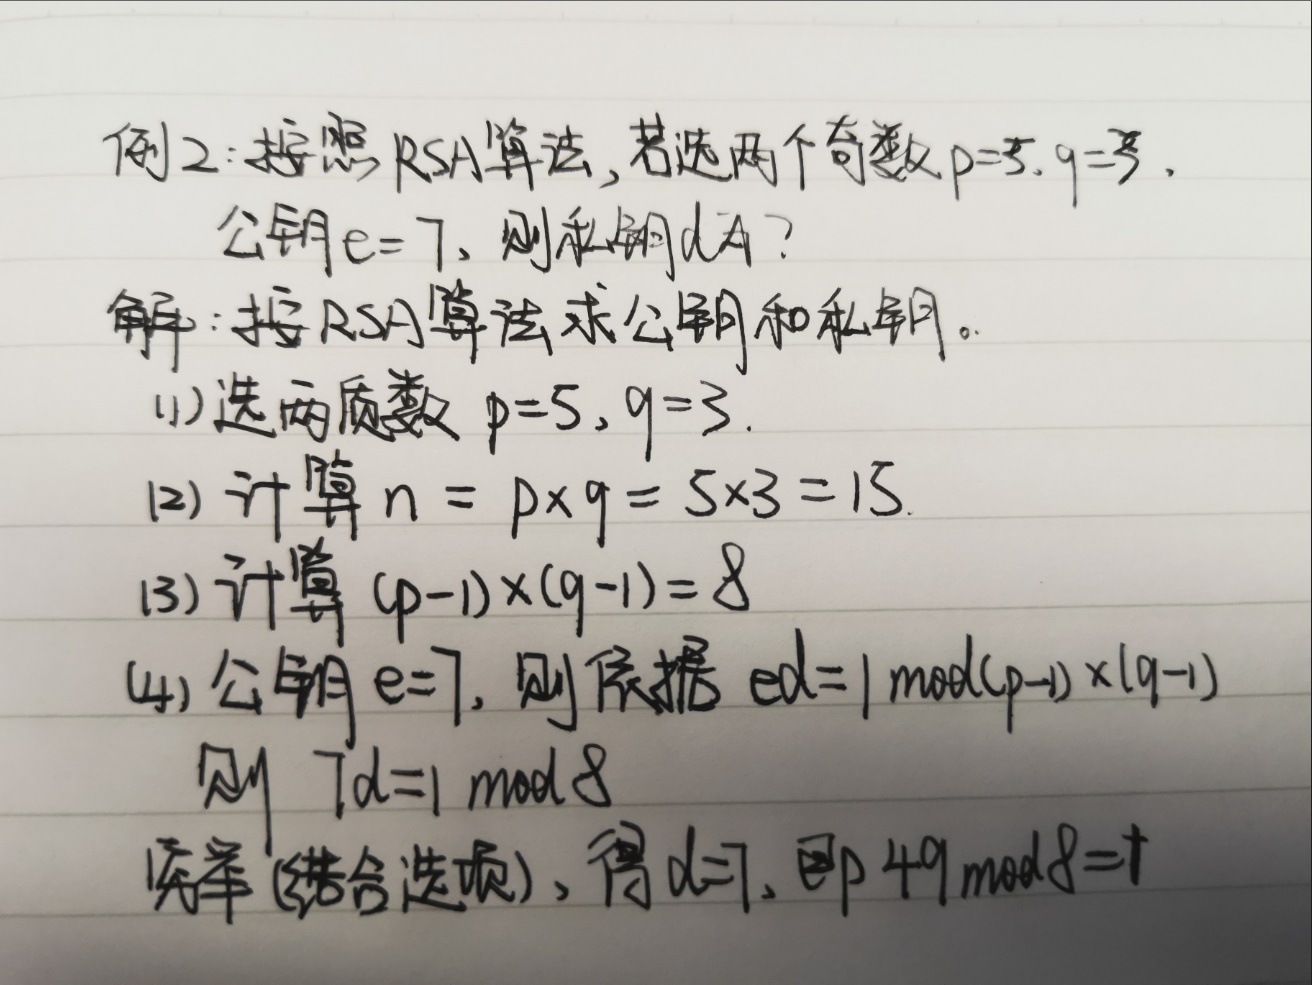 例2:按照RSA算法,若选两个奇数p=5,q=3,
公钥e=7,则私钥d为?
解:按RSA算法求公钥和私钥。
(1)选两质数 p=5,q=3.
(2)计算 n = p×q = 5×3=15.
(3)计算 (p-1)×(q-1)=8
(4)公钥 e=7,则依据 ed=1 mod(p-1)×(q-1)
则 7d=1 mod 8
穷举(结合选项),得d=7,即49 mod 8=1